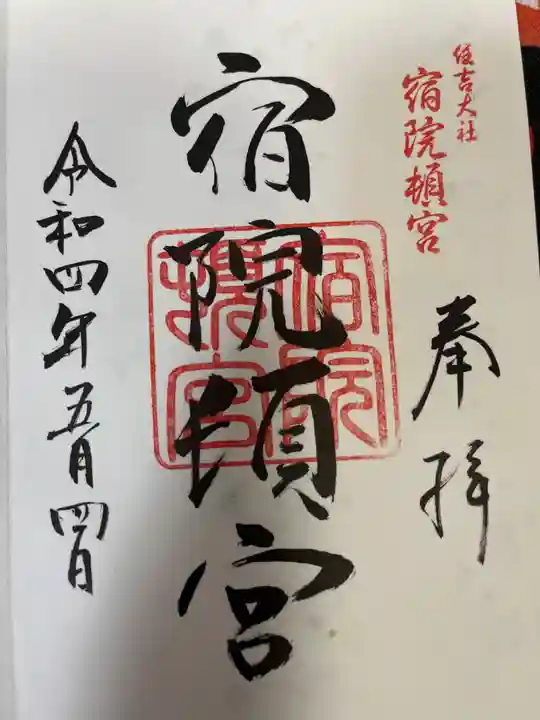 住吉大社
宿院頓宮
奉拝
宿院頓宮
宿院
頓宮
令和四年五月四日